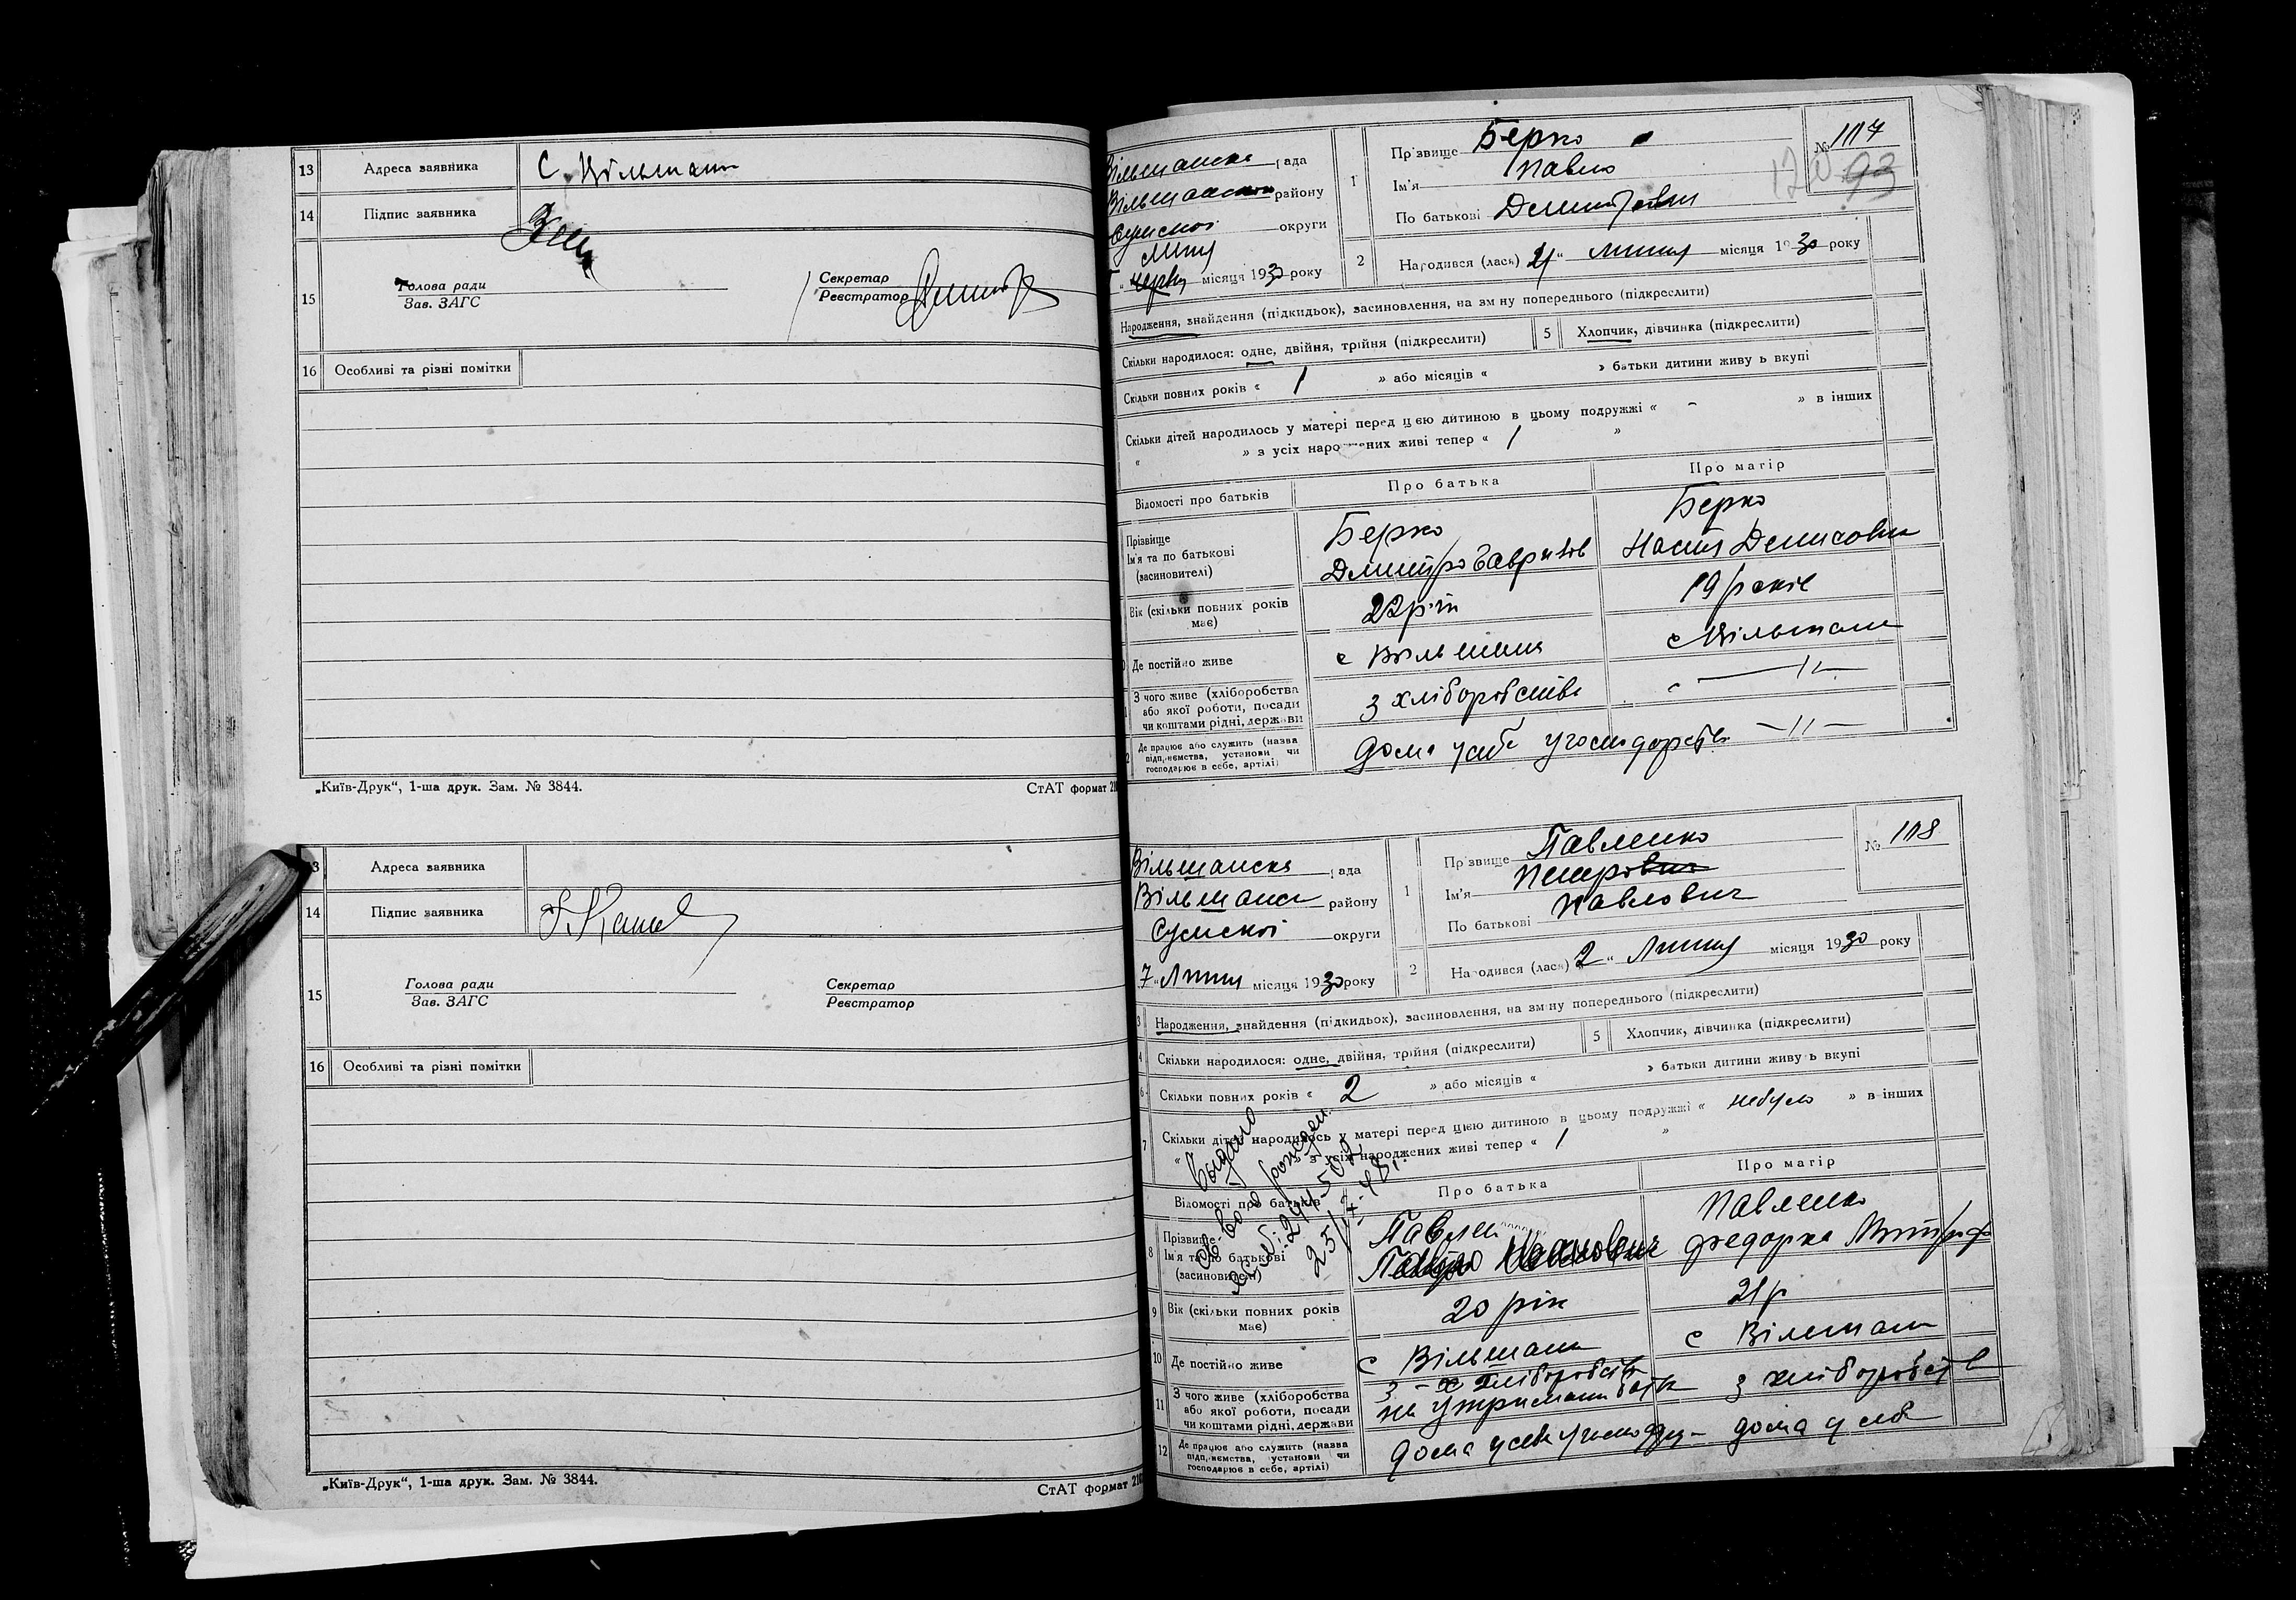 13 Адреса заявника С. Вільшани
14 Підпис заявника
15 Голова ради
Зав. ЗАГС
Секретар
Реєстратор
16 Особливі та різні помітки
„Київ-Друк“, 1-ша друк. Зам. № 3844.
СтАТ формат
13 Адреса заявника
14 Підпис заявника
15 Голова ради
Зав. ЗАГС
Секретар
Реєстратор
16 Особливі та різні помітки
„Київ-Друк“, 1-ша друк. Зам. № 3844.
СтАТ формат
Вільшанська рада
Вільшанської району
Сумської округи
Липня
червня місяця 1930 року
1 Прізвище Берко
Ім'я Павло
По батькові Дмитрович
№ 117
120 93
2 Народився (лась) 21 " липня місяця 1930 року
Народження, знайдення (підкидьок), засиновлення, на зміну попереднього (підкреслити)
Скільки народилося: одне, двійня, трійня (підкреслити)
5 Хлопчик, дівчинка (підкреслити)
Скільки повних років « 1 » або місяців « » батьки дитини живуть вкупі
Скільки дітей народилось у матері перед цією дитиною в цьому подружжі « - » в інших
« » з усіх народжених живі тепер « 1 »
Відомості про батьків Про батька Про матір
Прізвище
Ім'я та по батькові
(засиновителі)
Берко
Дмитро Гаврилов
Берко
Настя Денисовна
Вік (скільки повних років має) 22 рік 19 років
Де постійно живе с Вільшана с Вільшани
З чого живе (хліборобства
або якої роботи, посади
чи коштами рідні, держави
З хліборобства — 〃 —
Де працює або служить (назва
підприємства, установи чи
господарює в себе, артілі)
Дома у себе у господарстві — 〃 —
Вільшанська рада
Вільшанськ району
Сумської округи
7 " Липня місяця 1930 року
1 Прізвище Павленко
Ім'я Петрович
По батькові Павлович
№ 118
2 Народився (лась) 2 " Липня місяця 1930 року
3 Народження, знайдення (підкидьок), засиновлення, на зміну попереднього (підкреслити)
4 Скільки народилося: одне, двійня, трійня (підкреслити)
5 Хлопчик, дівчинка (підкреслити)
6 Скільки повних років « 2 » або місяців « » батьки дитини живуть вкупі
7 Скільки дітей народилось у матері перед цією дитиною в цьому подружжі « небуло » в інших
« » з усіх народжених живі тепер « 1 »
Выдано
св-во о рожден.
25/7-48 г.
Відомості про батьків Про батька Про матір
8 Прізвище
Ім'я та по батькові
(засиновителі)
Павлен
Іванович
Павленко
Федорка
9 Вік (скільки повних років має) 20 рік 21 р
10 Де постійно живе с Вільшани с Вільшани
11 З чого живе (хліборобства
або якої роботи, посади
чи коштами рідні, держави
З хліборобств
на утриманні батьк
з хліборобств
12 Де працює або служить (назва
підприємства, установи чи
господарює в себе, артілі)
Дома у себе дома у себе